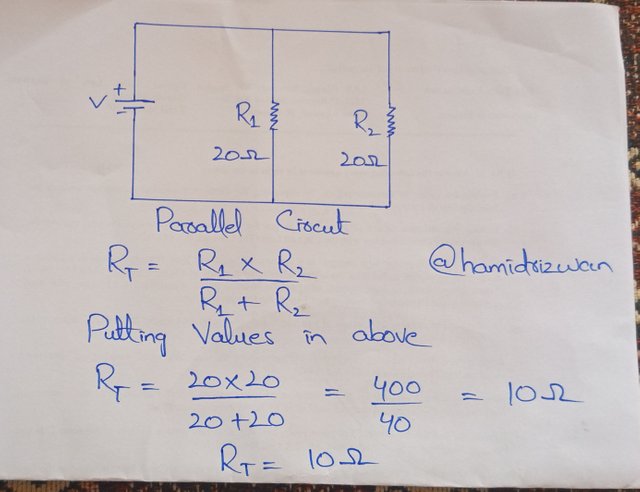 +
V
-
R₁
20Ω
R₂
20Ω
Parallel Circut
R_T = R₁ × R₂ / R₁ + R₂
@hamidrizwan
Putting Values in above
R_T = 20×20 / 20+20 = 400 / 40 = 10Ω
R_T = 10Ω